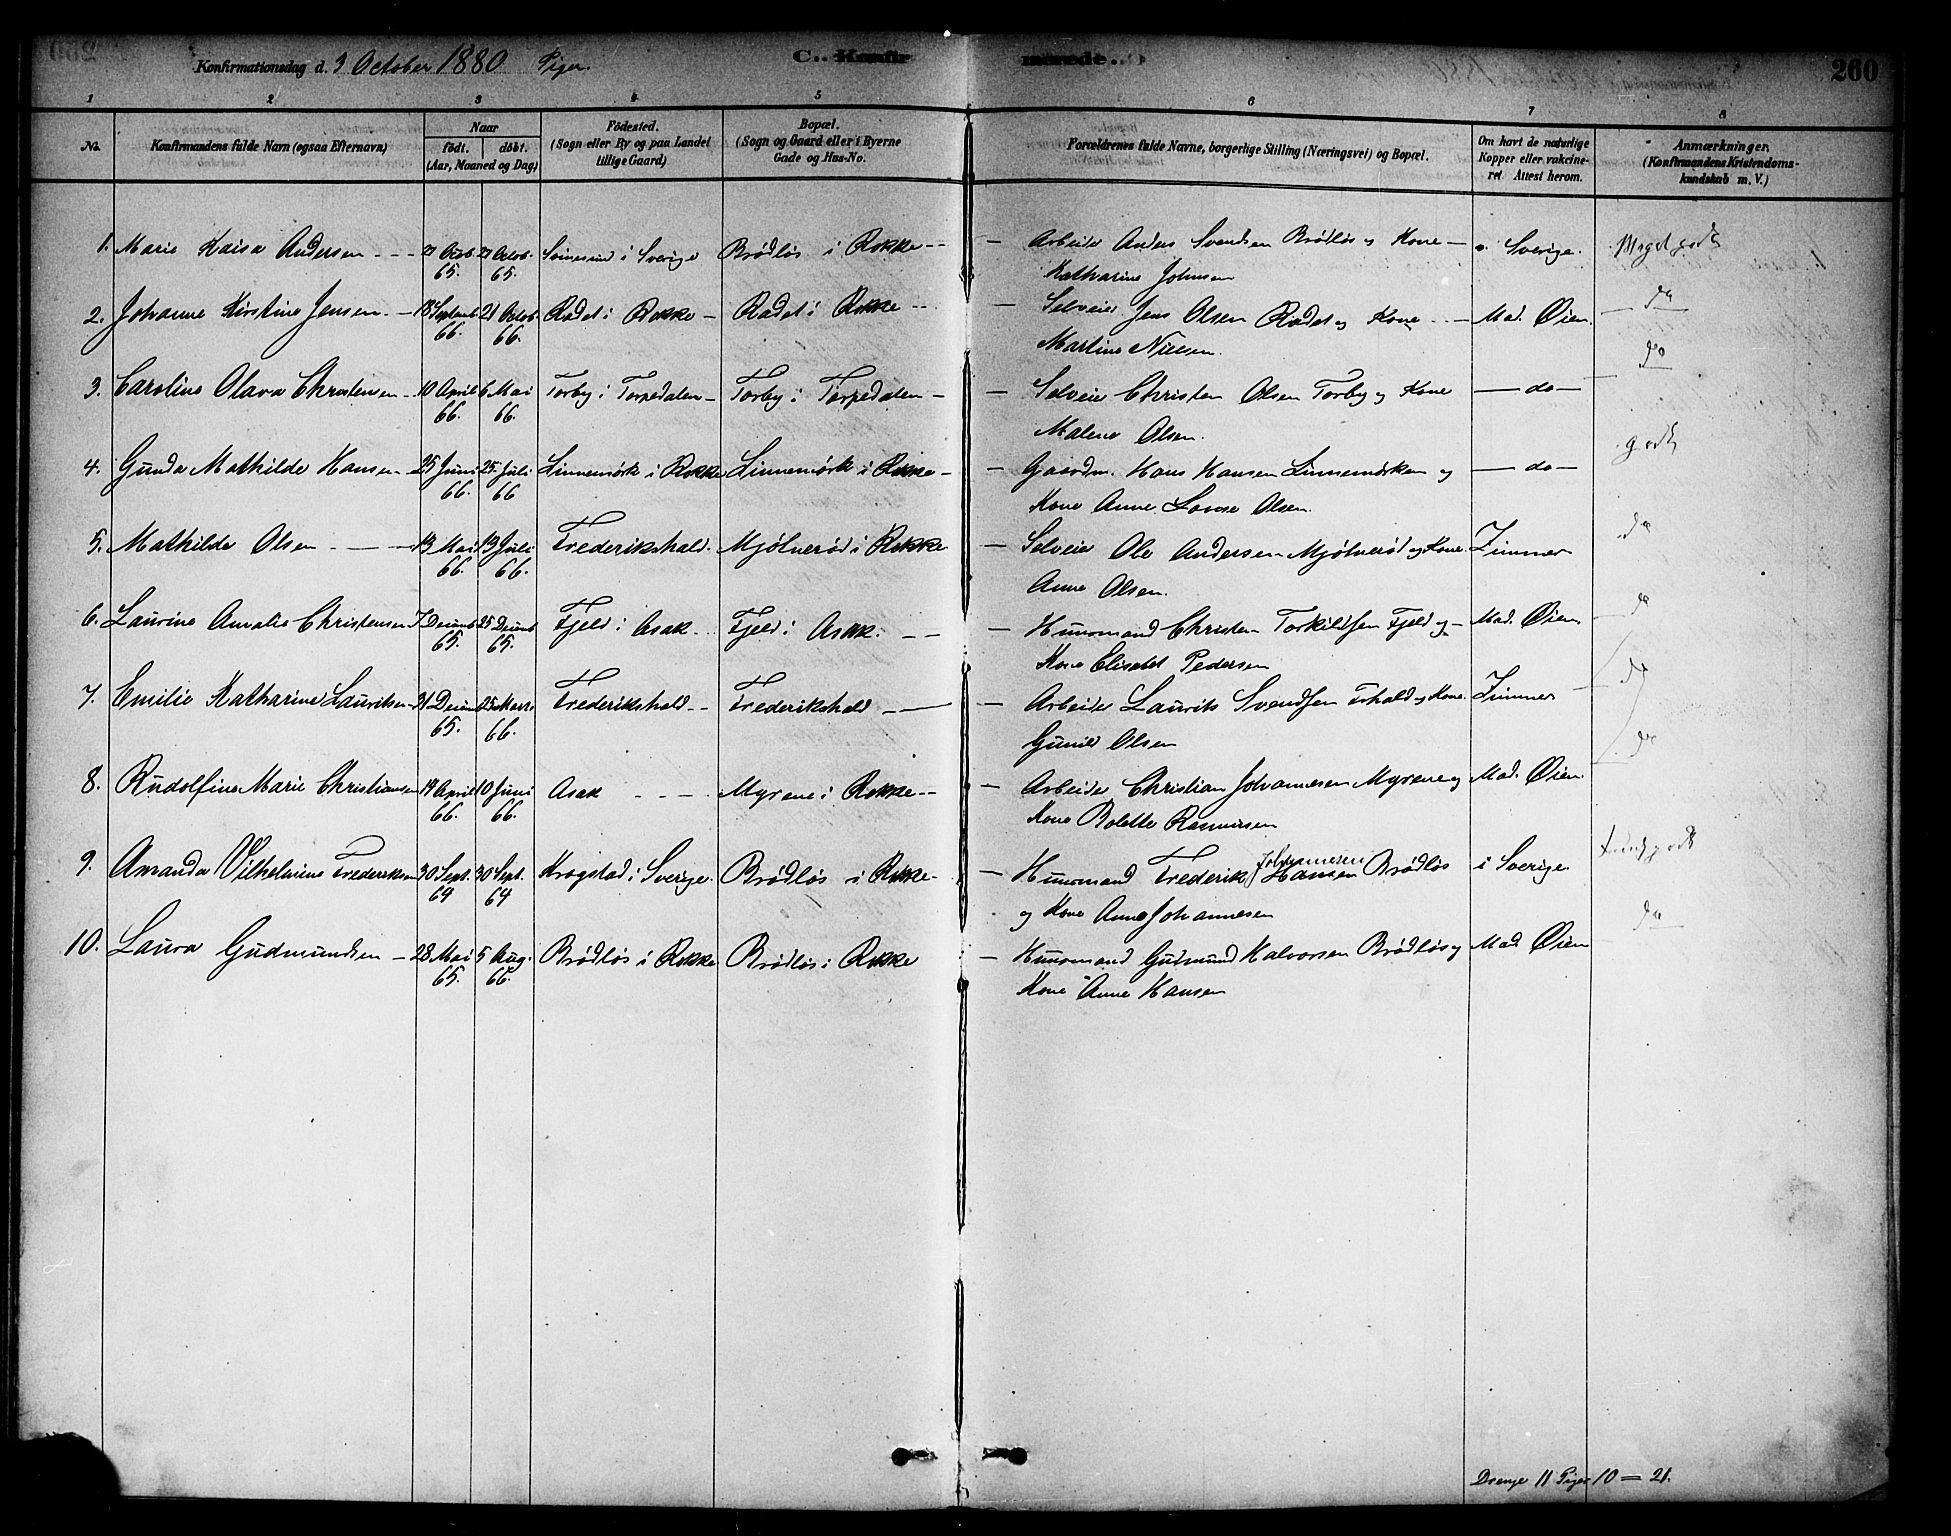 Konfirmationsdag d. 3 October 1880 Piger.
C. Konfirmerede.
260
1 2 3 4 5 6 7 8
No.
Konfirmandens fulde Navn (ogsaa Efternavn)
Naar
födt. döbt.
(Aar, Maaned og Dag)
Födested.
(Sogn eller By og paa Landet
tillige Gaard)
Bopæl.
(Sogn og Gaard eller i Byerne
Gade og Hus-No.
Forældrenes fulde Navne, borgerlige Stilling (Næringsvei) og Bopæl.
Om havt de naturlige
Kopper eller vakcine-
ret Attest herom.
Anmærkninger,
(Konfirmandens Kristendoms-
kundskab m. V.)
1. Marie Kaisa Andersen - - - Octob. Octob. Svinesund i Sverige Brödlös i Rokke -- — Arbeider Anders Svendsen Brödlös og Kone — i Sverige. Meget godt
65. 65. Katharine Johnsen
2. Johanne Kirstine Jensen. — 18 Septemb 21 Octob. Rödet i Rokke — Rödet i Rokke -- — Selveier Jens Olsen Rödet og Kone — Mad. Öien. do
66. 66. Martine Nielsen.
3. Caroline Olava Christensen — 10 April 6 Mai Torby i Torpedalen — Torby i Torpedalen — — Selveier Christen Olsen Torby og Kone — do — do
66. 66. Malene Olsen.
4. Gunda Mathilde Hansen — 25 Juni 25. Juli Linnemörk i Rokke Linnemörk i Rokke — — Gaardm. Hans Hansen Linnemörken og — do — godt
66. 66 Kone Anne Lovise Olsen.
5. Mathilde Olsen — — 13 Mai 19 Juli Frederikshald. Mjölneröd i Rokke — Selveier Ole Andersen Mjölneröd og Kone Zimmer do
66. 66. Anne Olsen.
6. Laurine Amalie Christensen 7 Decemb 25 Decemb Fjeld i Asak — Fjeld i Asak. — — — Huusmand Christen Torkildsen Fjeld og — Mad. Öien do
65. 65. Kone Elisabet Pedersen
7. Emilie Katharine Lauritsen 31 Decemb 25 Marts Frederikshald — Frederikshald — — Arbeider Laurits Svendsen Frhald og Kone. Zimmer do
65. 66. Gunild Olsen
8. Rudolfine Marie Christiansen 14 April 10 Juni Asak - - - Myrene i Rokke -- — Arbeider Christian Johannesen Myrene og Mad. Öien. do
66. 66. Kone Bolette Rasmusen
9. Amanda Vilhelmine Frederiksen 30 Sept. 30 Sept. Krogstad i Sverige. Brödlös i Rokke — — Huusmand Frederik Johannesen Hansen Brödlös i Sverige
64 64 og Kone Anne Johannesen
10. Laura Gudmundsen — 28 Mai 5 Aug. Brödlös i Rokke Brödlös i Rokke — Huusmand Gudmund Halvorsen Brödlös og Mad. Öien do
65. Kone Anne Hansen
Drenge 11 Piger 10 = 21.